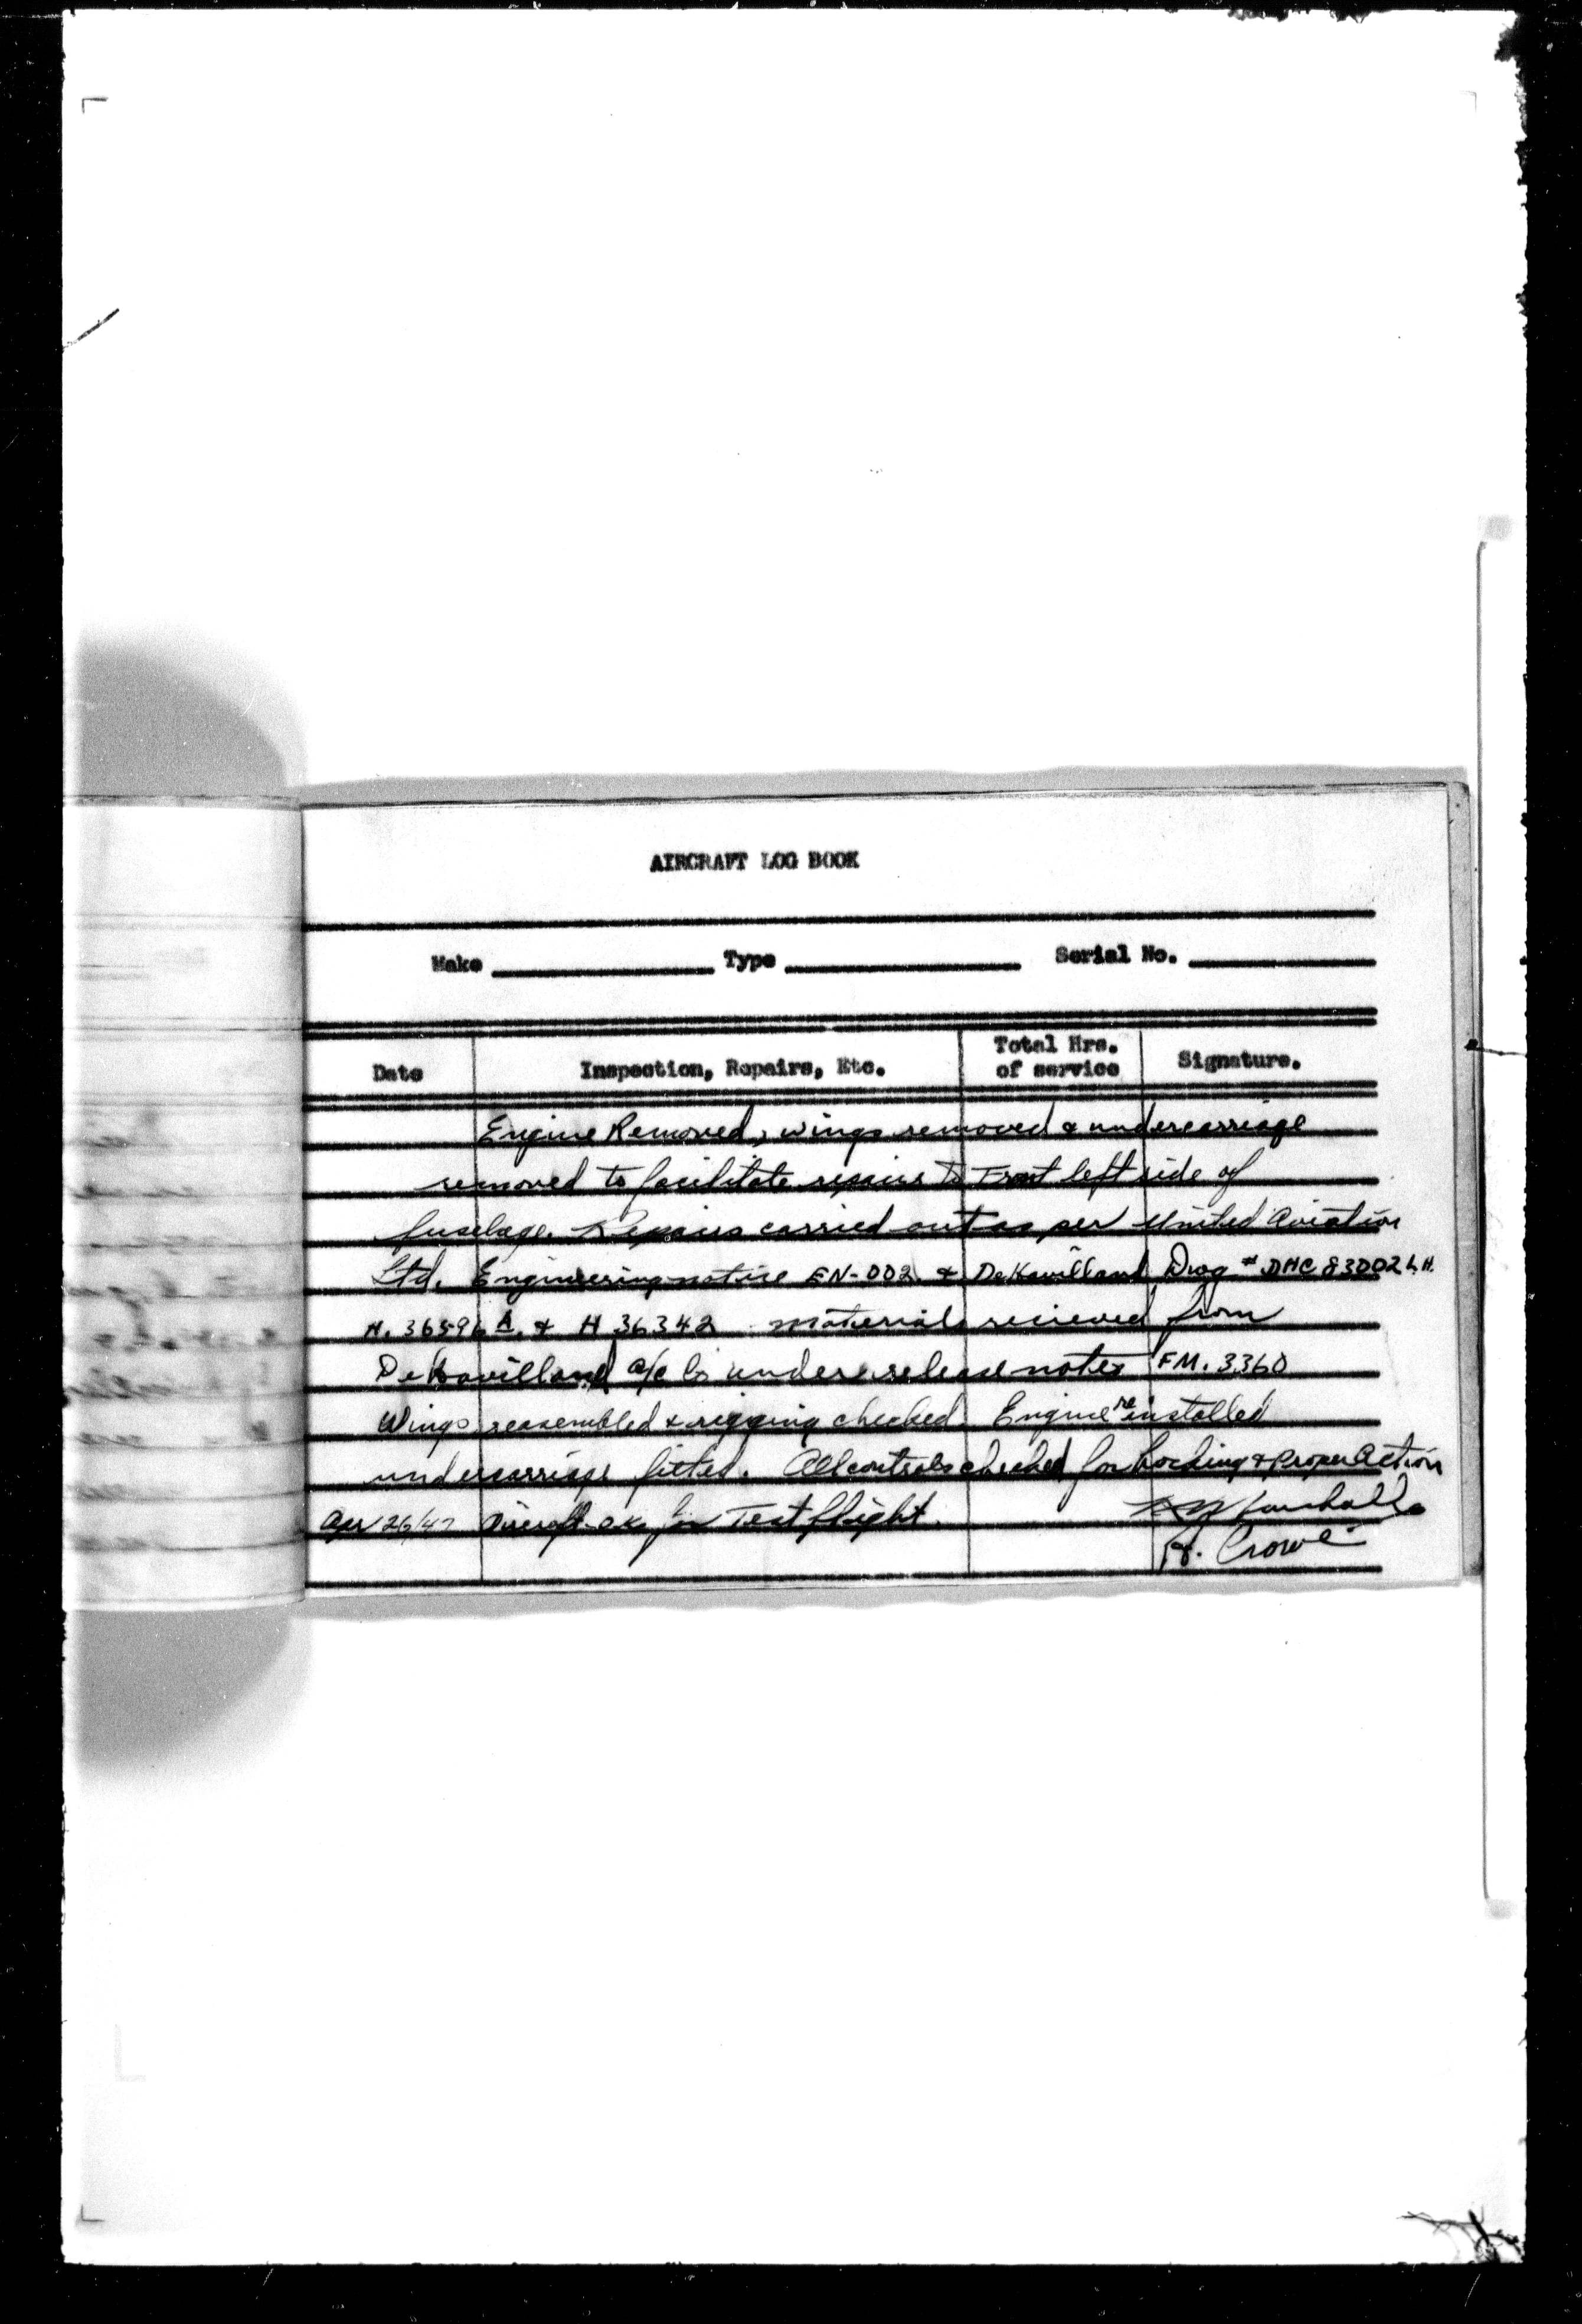 AIRCRAFT LOG BOOK
Make Type Serial No.
Date Inspection, Repairs, Etc. Total Hrs. of service Signature.
Engine Removed, wings removed & undercarriage
removed to facilitate repairs to Front left side of
fuselage. Repairs carried out as per United Aviation
Ltd. Engineering notice EN-002 & DeHavilland Drwg # DHC 83D02 L.H.
H. 36596 A. & H 36342 Materials recieved from
DeHavilland a/c Co under release notes FM. 3360
Wings reasembled & rigging checked. Engine reinstalled
undercarriage fitted. All controls checked for Locking & Proper Action
Apr 26/47 Aircraft O.K. for Test flight.
Crowe